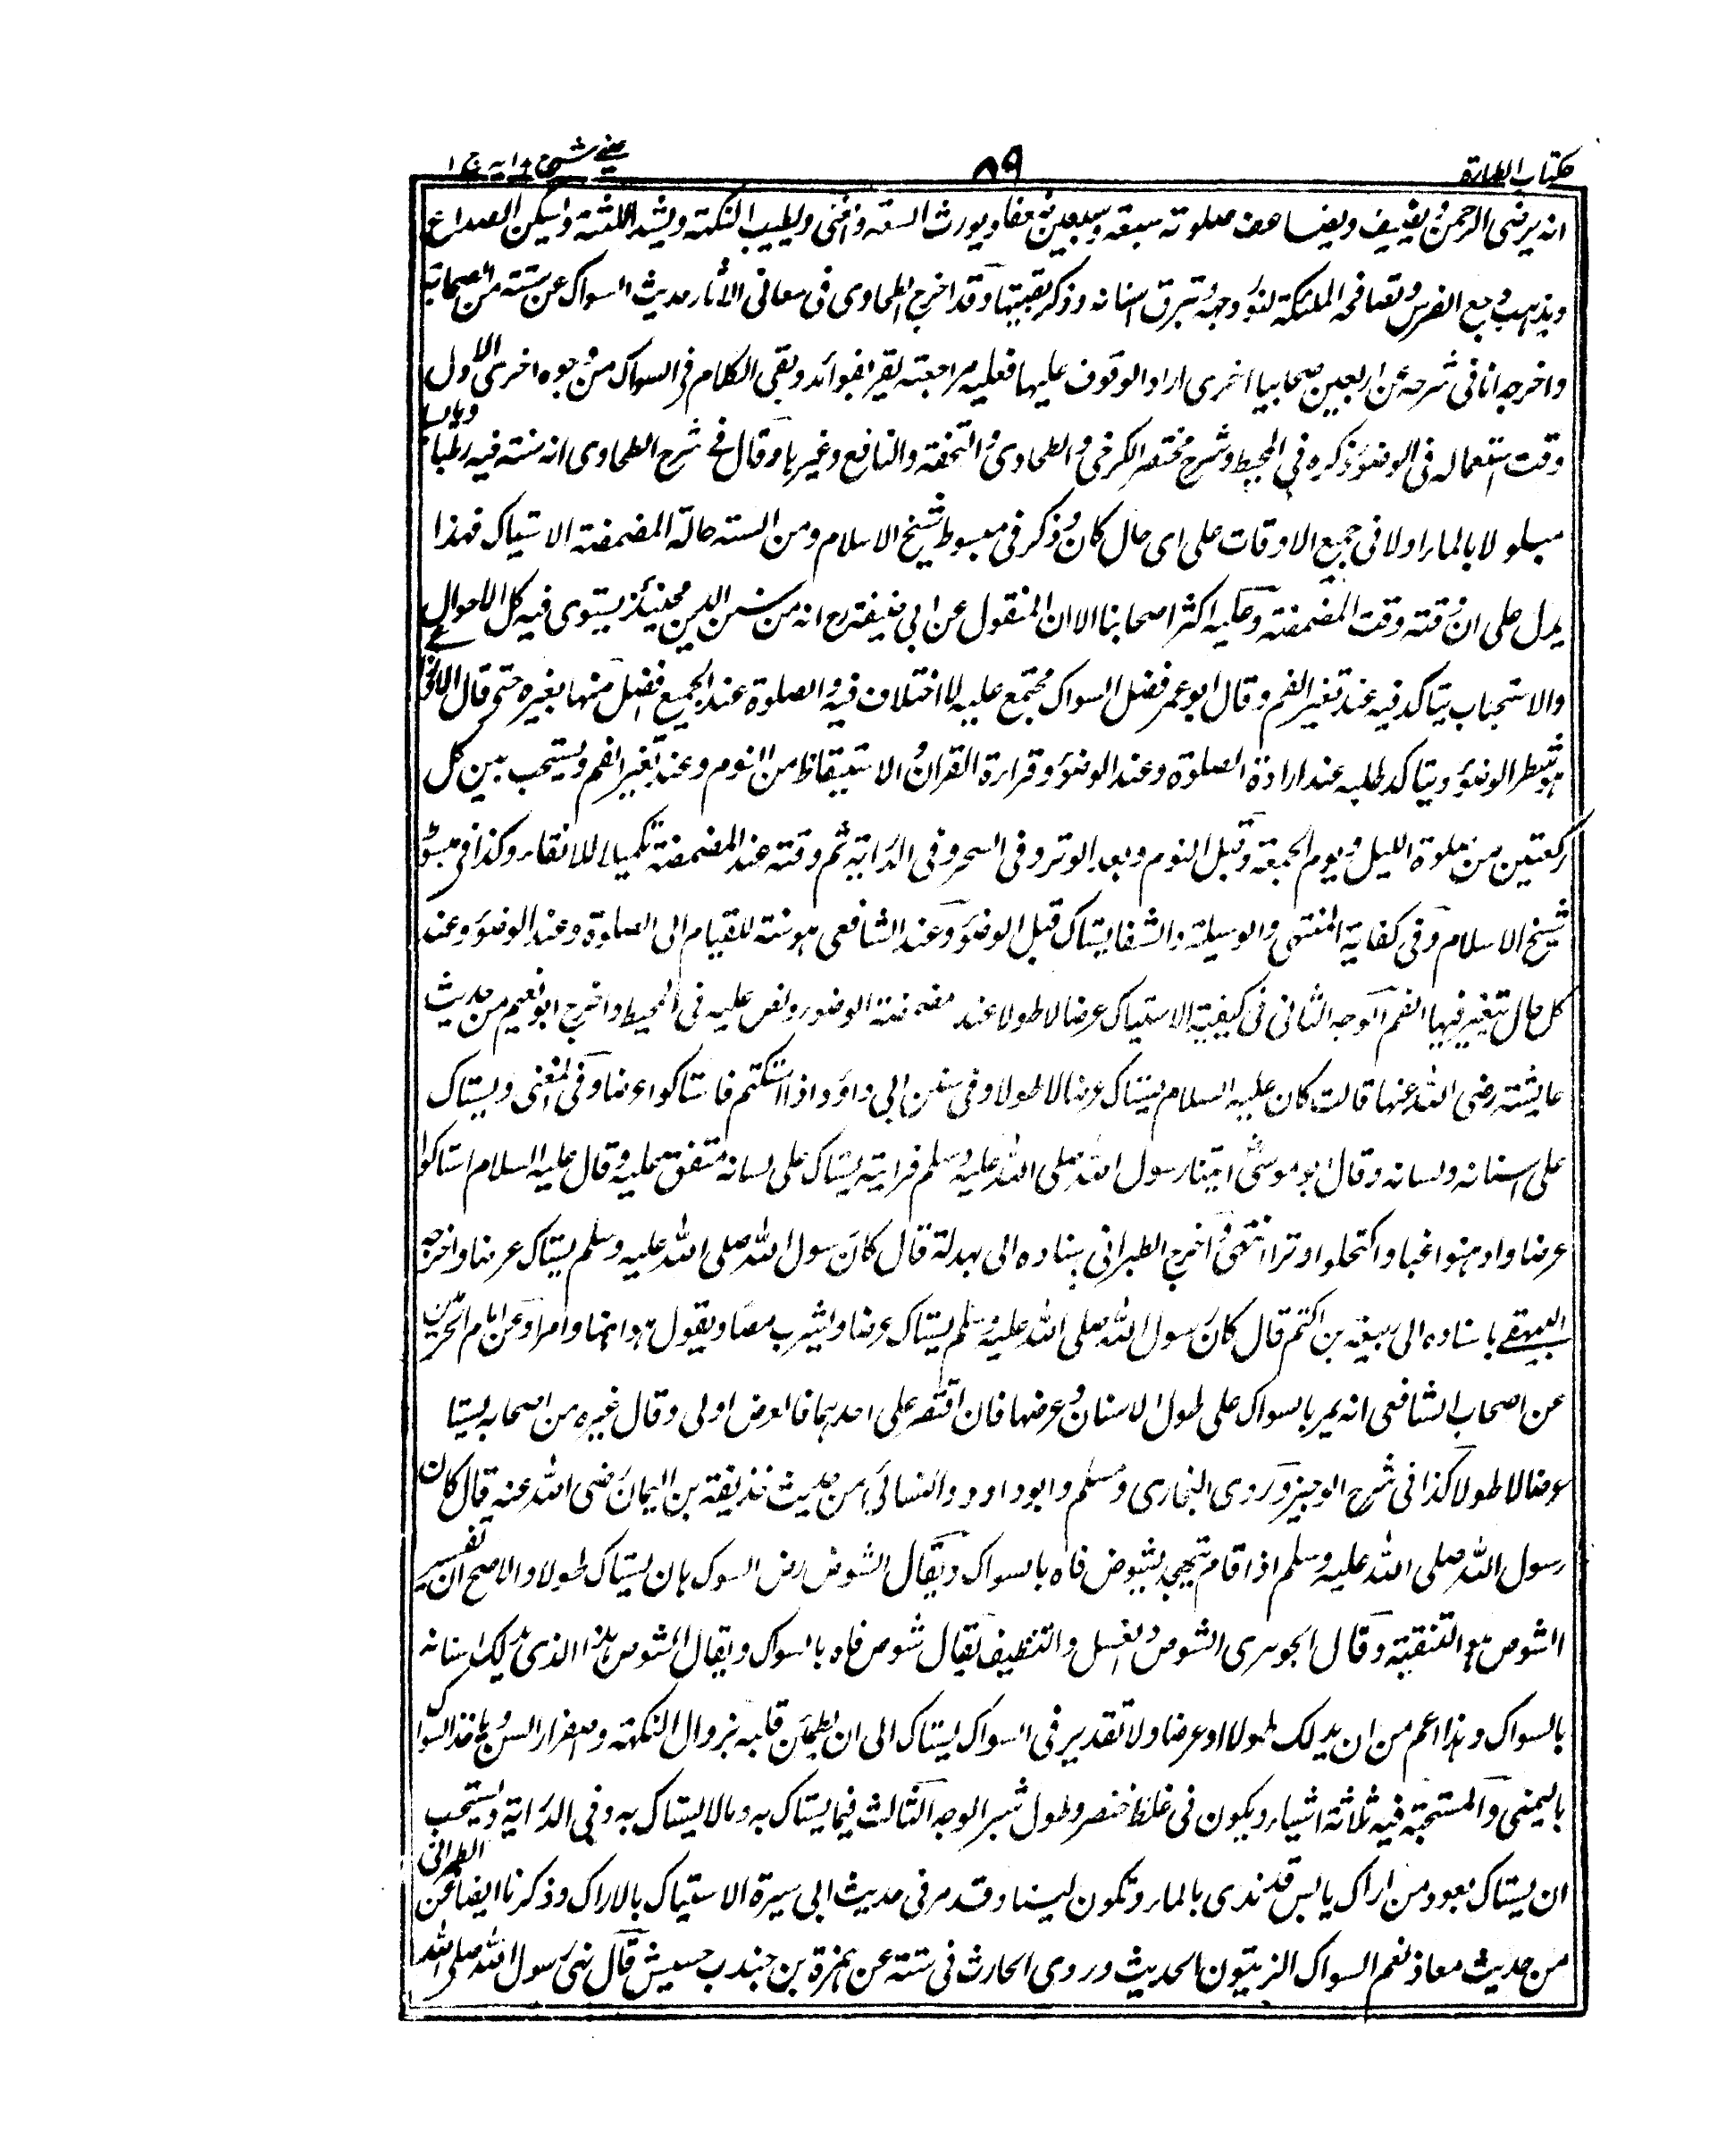 كتاب الطهارة
٨٩
عيني شرح هدايه ج ١
انه يرضى الرحمن ويضيف ويضاعف صلوته سبعة وسبعين ضعفا ويورث السعة والغنى ويطيب النكهة ويشد اللثة ويسكن الصداع
ويذهب وجع الضرس وتصافحه الملئكة لنور وجهه وتبرق اسنانه وذكر بقيتها وقد اخرج الطحاوى فى معانى الأثار حديث السواك عن ستة من الصحابة
واخرجه انا فى شرحه عن اربعين صحابيا اخرى اراد الوقوف عليها فعليه مراجعته يقر بفوائد وبقى الكلام فى السواك من وجوه اخرى الاول
وقت استعماله فى الوضوء ذكره فى المحيط وشرح مختصر الكرخى والطحاوى والتحفة والنافع وغيرها وقال فى شرح الطحاوى انه سنة فيه رطبا ويابسا
مبلولا بالماء اولا فى جميع الاوقات على اى حال كان وذكر فى مبسوط شيخ الاسلام ومن السنة حالة المضمضة الاستياك فهذا
يدل على ان وقته وقت المضمضة وعليه اكثر اصحابنا الا ان المنقول عن ابى حنيفة رح انه من سنن الدين فحينئذ يستوى فيه كل الاحوال
والاستحباب يتاكد فيه عند تغير الفم وقال ابو عمر فضل السواك مجتمع عليه لا اختلاف فيه والصلوة عند الجميع افضل منها بغيره حتى قال الاوزاعى
هو شطر الوضوء ويتاكد طلبه عند ارادة الصلوة وعند الوضوء وقراءة القران والاستيقاظ من النوم وعند تغير الفم ويستحب بين كل
ركعتين من صلوة الليل ويوم الجمعة وقبل النوم وبعد الوتر وفى السحر وفى الدراية ثم وقته عند المضمضة تكميلا للانقاء وكذا فى مبسوط
شيخ الاسلام وفى كفاية المنتهى والوسيلة والشفا يستاك قبل الوضوء وعند الشافعى هو سنة للقيام الى الصلوة وعند الوضوء وعند
كل حال تتغير فيها الفم الوجه الثانى فى كيفية الاستياك عرضا لا طولا عند مضمضة الوضوء ونص عليه فى المحيط واخرج ابو نعيم من حديث
عايشة رضى الله عنها قالت كان عليه السلام يستاك عرضا لا طولا وفى سنن ابى داود اذا استكتم فاستاكوا عرضا وفى المغنى ويستاك
على اسنانه ولسانه وقال ابو موسى اتينا رسول الله صلى الله عليه وسلم فرايته يستاك على لسانه متفق عليه وقال عليه السلام استاكوا
عرضا وادهنوا غبا واكتحلوا وترا انتهى واخرج الطبرانى بسناده الى بهدلة قال كان رسول الله صلى الله عليه وسلم يستاك عرضا واخرجه
البيهقى باسناده الى ربيعة بن اكثم قال كان رسول الله صلى الله عليه وسلم يستاك عرضا ويشرب مصا ويقول هو اهنا وامرا وعن امام الحرمين
من اصحاب الشافعى انه يمر بالسواك على طول الاسنان وعرضها فان اقتصر على احدهما فالعرض اولى وقال غيره من اصحابه يستاك
عرضا لا طولا كذا فى شرح الوجيز وروى البخارى ومسلم وابو داود والنسائى من حديث حذيفة بن اليمان رضى الله عنه قال كان
رسول الله صلى الله عليه وسلم اذا قام يتهجد يشوص فاه بالسواك ويقال الشوص رض السوك بان يستاك طولا والاصح ان تفسير
الشوص هو التنقية وقال الجوهرى الشوص الغسل والتنظيف يقال شوص فاه بالسواك ويقال الشوص هذا الذى يدلك اسنانه
بالسواك وهذا اعم من ان يدلك طولا او عرضا ولا تقدير فى السواك يستاك الى ان يطمئن قلبه بزوال النكهة واصفرار السن وياخذ السواك
باليمنى والمستحبة فيه ثلاثة اشياء ويكون فى غلظ خنصر وطول شبر الوجه الثالث فيما يستاك به وما لا يستاك به وفى الدراية ويستحب
ان يستاك بعود من اراك يابس قد ندى بالماء وتكون لينا وقد مر فى حديث ابى سبرة الاستياك بالاراك وذكرنا ايضا عن الطبرانى
من حديث معاذ نعم السواك الزيتون الحديث وروى الحارث فى سننه عن ضمرة بن جندب قال نهى رسول الله صلى الله